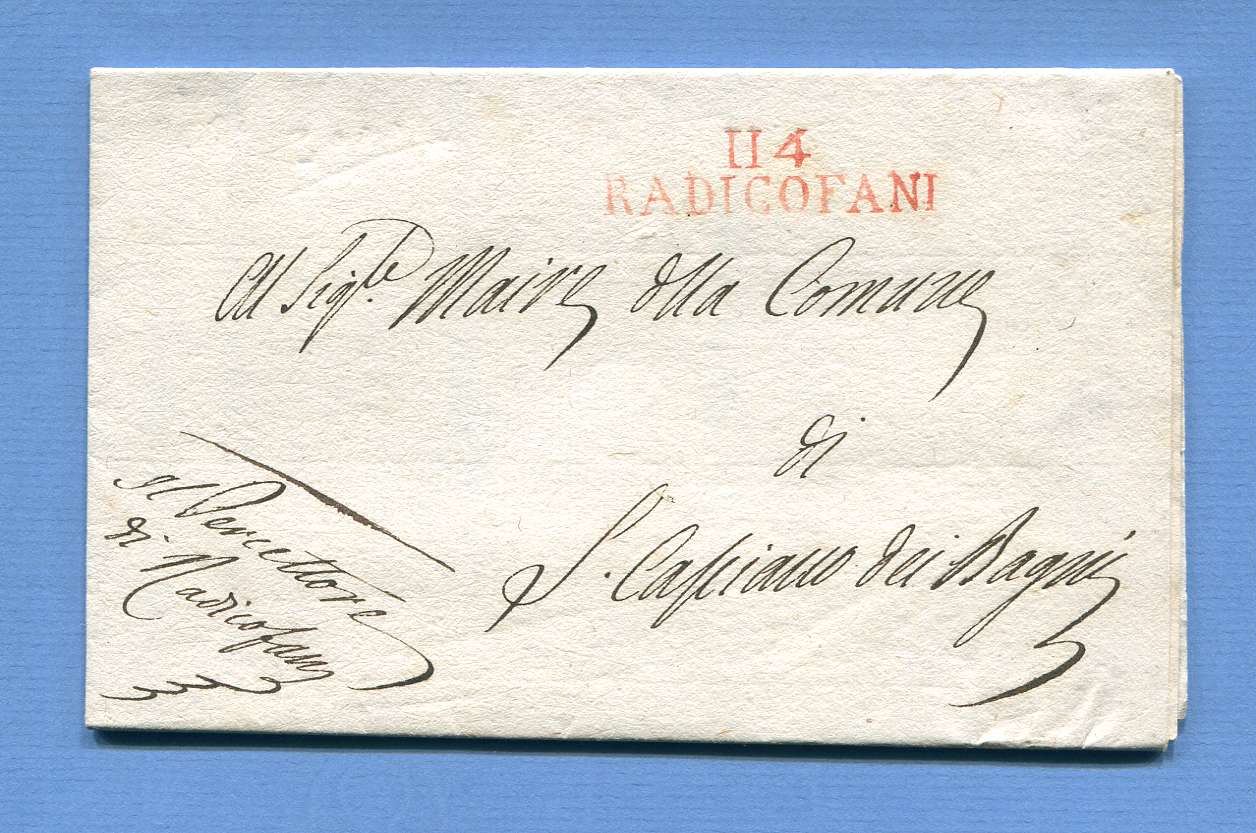 114
RADICOFANI
Al Sigle. Maire della Comune
di
S. Casciano dei Bagni
Il Percettore
di Radicofani